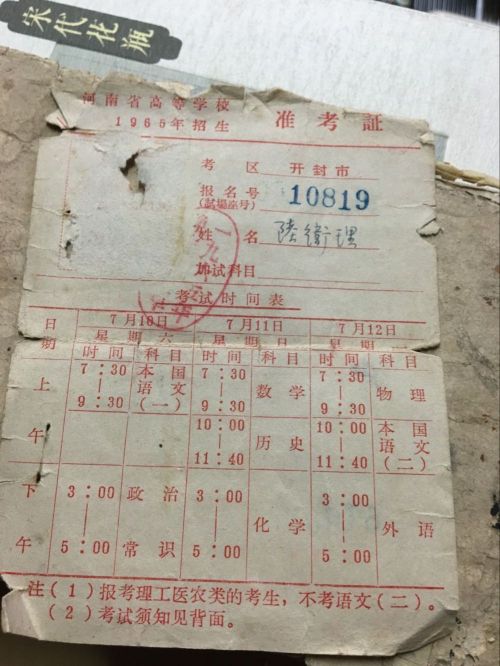 宋代花瓶
河南省高等学校
1965年招生 准考証
考 区 开封市
报名号
(試場座号) 10819
姓 名 陆衛理
加试科目
考试时间表
日期 7月10日 7月11日 7月12日
星期六 星期日 星期
时间 科目 时间 科目 时间 科目
上午 7:30—9:30 本国语文(一) 7:30—9:30 数学 7:30—9:30 物理
10:00—11:40 历史 10:00—11:40 本国语文(二)
下午 3:00—5:00 政治常识 3:00—5:00 化学 3:00—5:00 外语
注(1)报考理工医农类的考生,不考语文(二)。
(2)考试须知见背面。